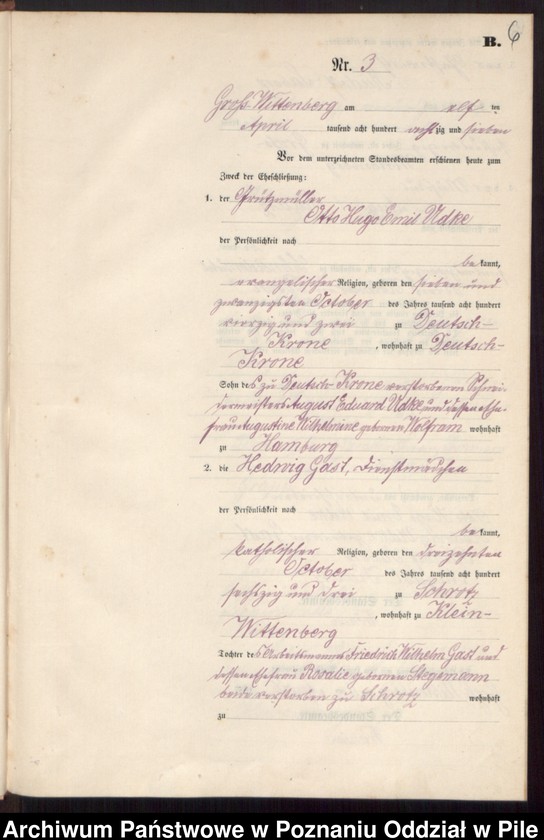 B. 6
Nr. 3
Groß Wittenberg am elf ten
April tausend acht hundert achtzig und sieben
Vor dem unterzeichneten Standesbeamten erschienen heute zum
Zweck der Eheschließung:
1. der Grützmüller
Otto Hugo Emil Udke
der Persönlichkeit nach
bekannt,
evangelischer Religion, geboren den sieben und
zwanzigsten October des Jahres tausend acht hundert
vierzig und zwei zu Deutsch-
Krone, wohnhaft zu Deutsch-
Krone
Sohn des zu Deutsch-Krone verstorbenen Schnei-
dermeisters August Eduard Udke und dessen Ehe-
frau Augustine Wilhelmine geborenen Wolfram wohnhaft
zu Hamburg
2. die Hedwig Gast, Dienstmädchen
der Persönlichkeit nach
bekannt,
katholischer Religion, geboren den dreizehnten
October des Jahres tausend acht hundert
sechszig und drei zu Schrotz
, wohnhaft zu Klein-
Wittenberg
Tochter des Arbeitsmannes Friedrich Wilhelm Gast und
dessen Ehefrau Rosalie geborenen Stegemann
beide verstorben zu Schrotz wohnhaft
zu
Archiwum Państwowe w Poznaniu Oddział w Pile